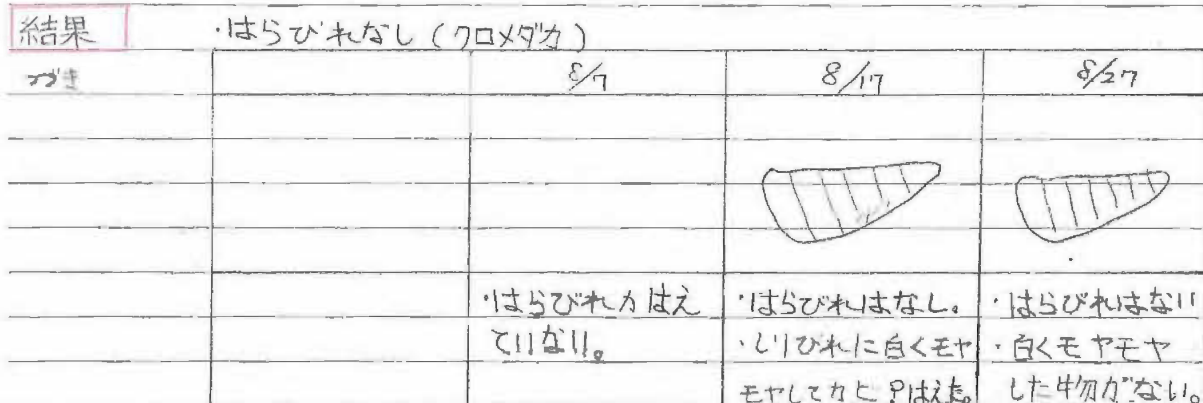 結果 ・はらびれなし（クロメダカ）
つづき 8/7 8/17 8/27
・はらびれがはえ
ていない。
・はらびれはなし。
・しりびれに白くモヤ
モヤしてカビ?はえた。
・はらびれはない
・白くモヤモヤ
した物がない。